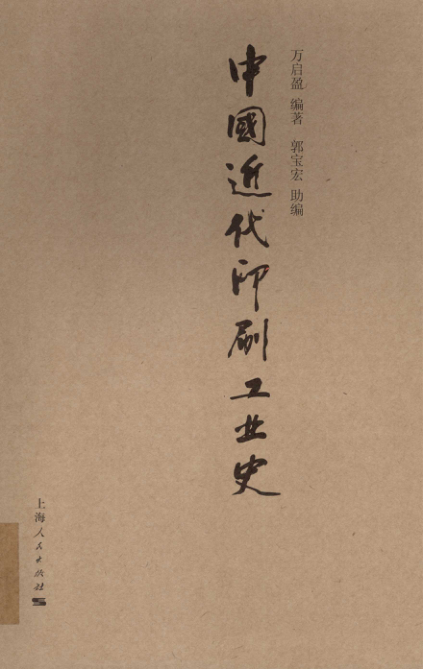 万启盈 编著 郭宝宏 助编
中國近代印刷工业史
上海人民出版社